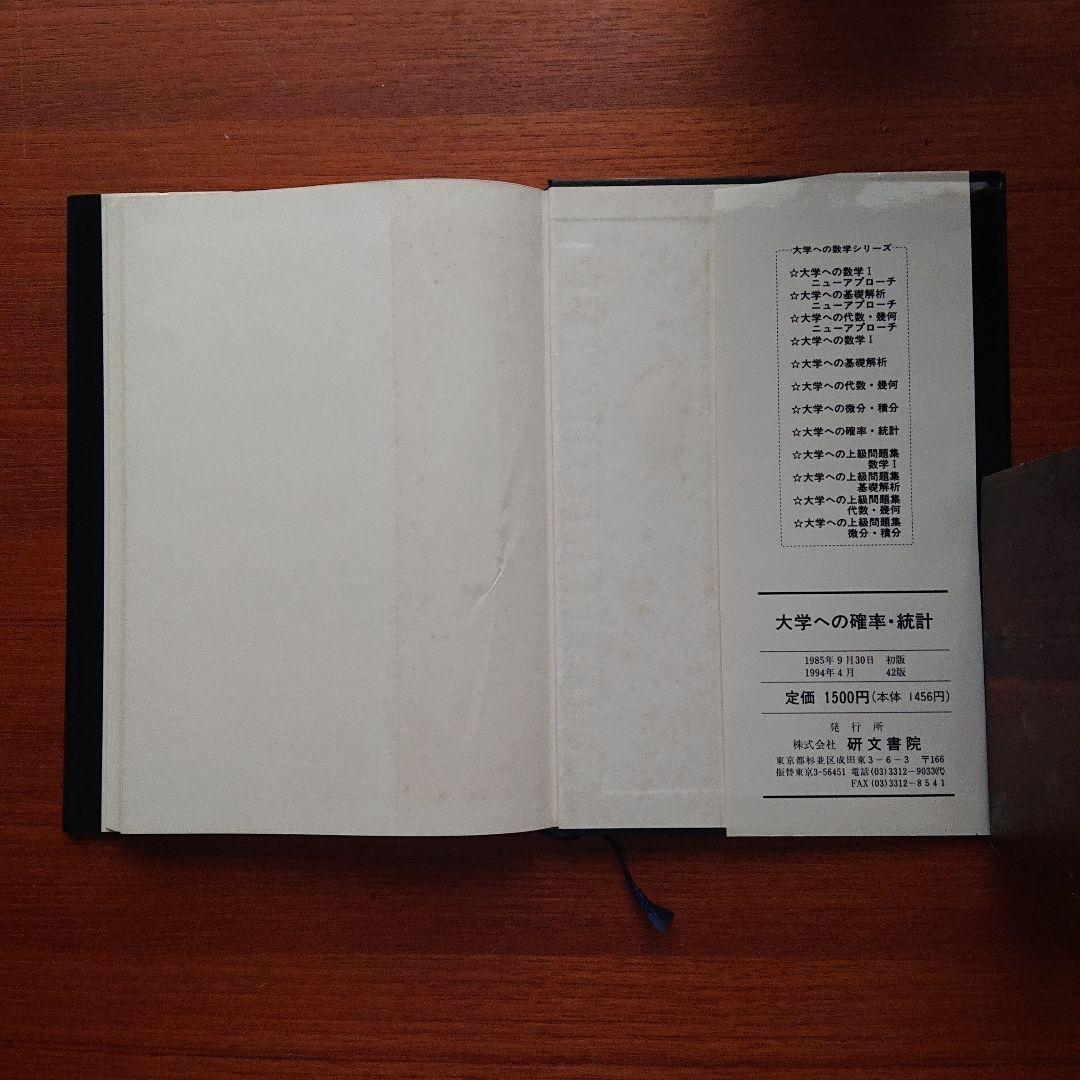 大学への数学シリーズ
☆大学への数学Ⅰ
ニューアプローチ
☆大学への基礎解析
ニューアプローチ
☆大学への代数・幾何
ニューアプローチ
☆大学への数学Ⅰ
☆大学への基礎解析
☆大学への代数・幾何
☆大学への微分・積分
☆大学への確率・統計
☆大学への上級問題集
数学Ⅰ
☆大学への上級問題集
基礎解析
☆大学への上級問題集
代数・幾何
☆大学への上級問題集
微分・積分
大学への確率・統計
1985年9月30日 初版
1994年4月 42版
定価 1500円(本体 1456円)
発行所
株式会社 研文書院
東京都杉並区成田東3-6-3 〒166
振替東京3-56451 電話(03)3312-9033代
FAX(03)3312-8541